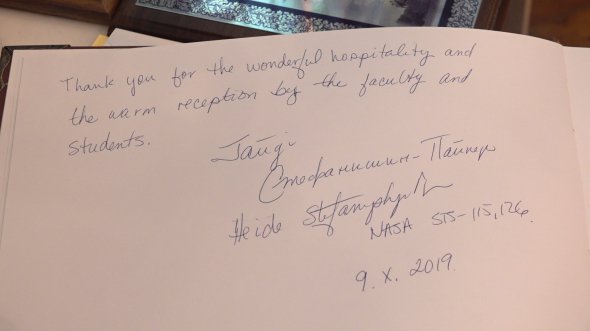 Thank you for the wonderful hospitality and
the warm reception by the faculty and
students.
Гайді
Стефанишин-Пайпер
Heide
NASA STS-115, 126
9. X. 2019